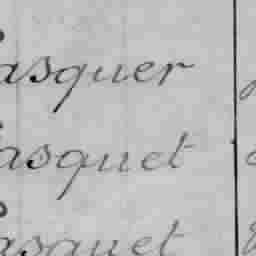 asquer
asquet
asquet